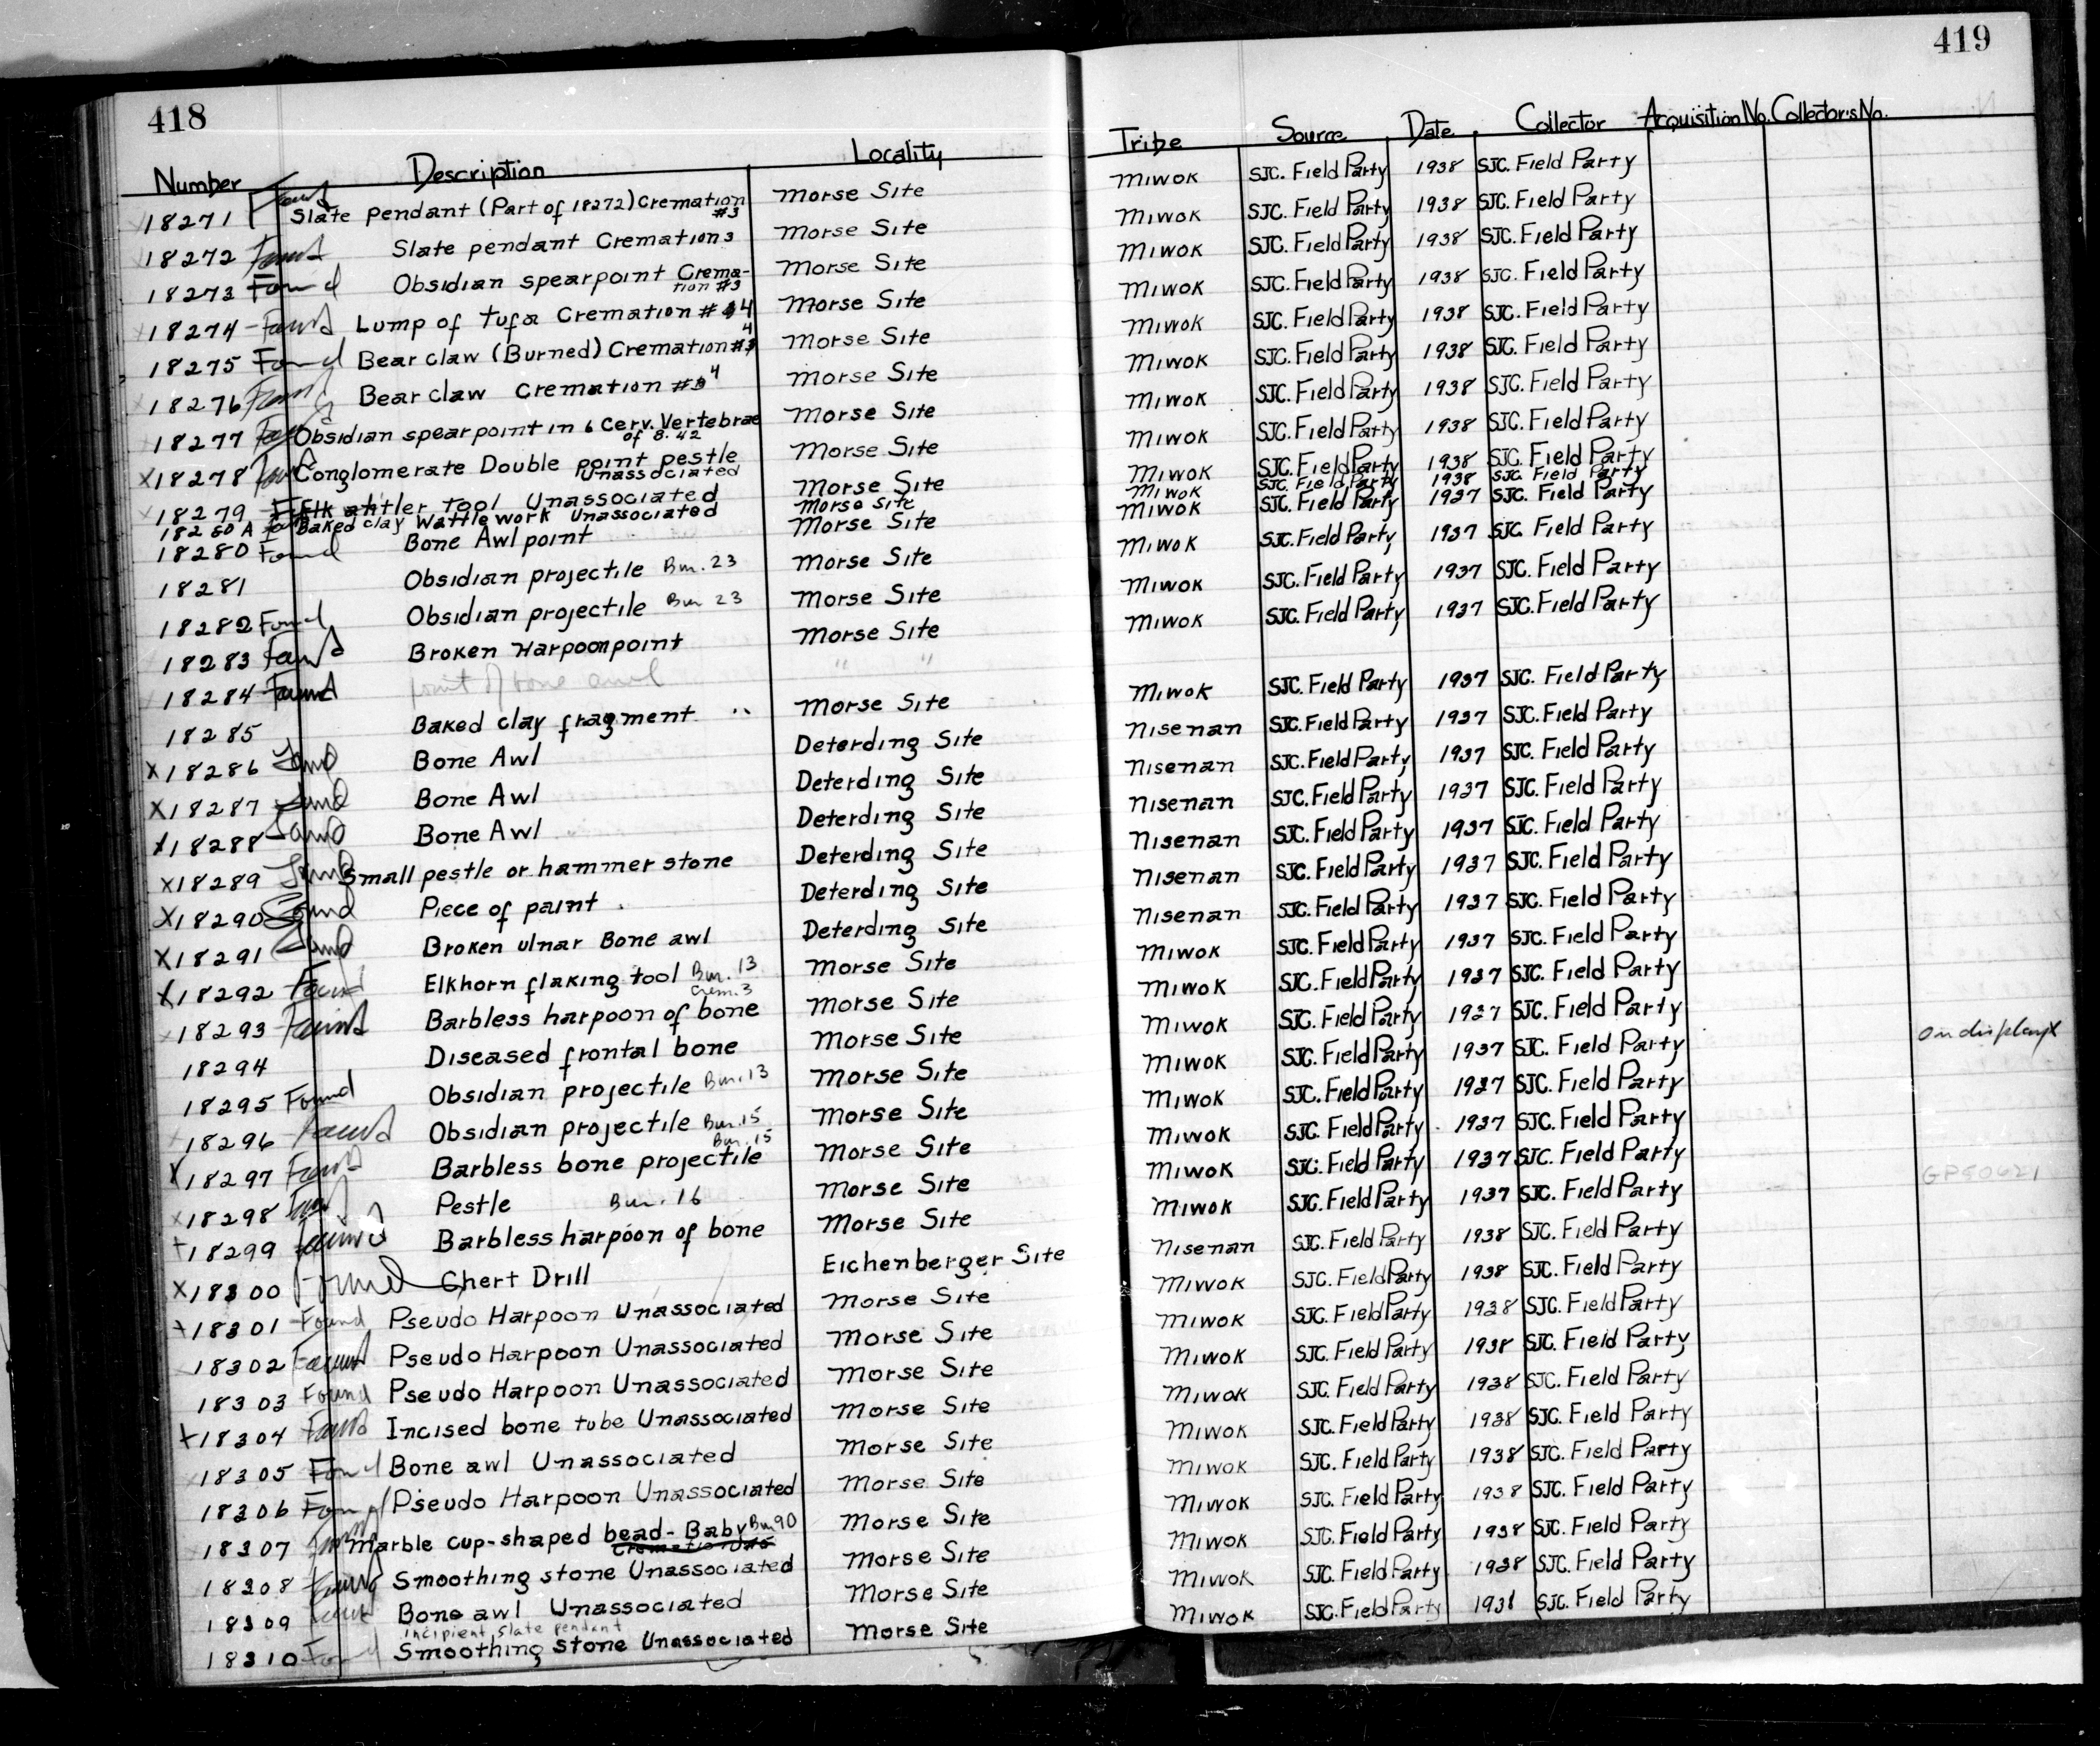 418
Number Description Locality
18271 Found Slate pendant (Part of 18272) Cremation #3 Morse Site
18272 Found Slate pendant Cremation 3 Morse Site
18273 Found Obsidian spearpoint Cremation #3 Morse Site
18274 Found Lump of tufa Cremation # 4 Morse Site
18275 Found Bear claw (Burned) Cremation # 4 Morse Site
18276 Found Bear claw Cremation # 4 Morse Site
18277 Found Obsidian spearpoint in 6 Cerv. Vertebrae of B. 42 Morse Site
X18278 Found Conglomerate Double point pestle Unassociated Morse Site
18279 Elk antler tool Unassociated Morse Site
18280 A Found Baked clay Wattle work Unassociated Morse Site
18280 Found Bone Awl point Morse Site
18281 Obsidian projectile Bur. 23 Morse Site
18282 Found Obsidian projectile Bur 23 Morse Site
18283 Found Broken Harpoon point Morse Site
18284 Found point of bone awl " "
18285 Baked clay fragment Morse Site
X18286 Found Bone Awl Deterding Site
X18287 Found Bone Awl Deterding Site
X18288 Found Bone Awl Deterding Site
X18289 Found Small pestle or hammer stone Deterding Site
X18290 Found Piece of paint Deterding Site
X18291 Found Broken ulnar Bone awl Deterding Site
X18292 Found Elkhorn flaking tool Bur. 13 Crem. 3 Morse Site
18293 Found Barbless harpoon of bone Morse Site
18294 Diseased frontal bone Morse Site
18295 Found Obsidian projectile Bur. 13 Morse Site
18296 Found Obsidian projectile Bur. 15 Morse Site
X18297 Found Barbless bone projectile Bur. 15 Morse Site
X18298 Found Pestle Bur. 16 Morse Site
+18299 Found Barbless harpoon of bone Morse Site
X18300 Found Chert Drill Eichenberger Site
+18301 Found Pseudo Harpoon Unassociated Morse Site
18302 Found Pseudo Harpoon Unassociated Morse Site
18303 Found Pseudo Harpoon Unassociated Morse Site
+18304 Found Incised bone tube Unassociated Morse Site
18305 Found Bone awl Unassociated Morse Site
18306 Found Pseudo Harpoon Unassociated Morse Site
18307 Found Marble cup-shaped bead - Baby Bur 90 Morse Site
18308 Found Smoothing stone Unassociated Morse Site
18309 Found Bone awl Unassociated Morse Site
incipient slate pendant
18310 Found Smoothing stone Unassociated Morse Site
419
Tribe Source Date Collector Acquisition No. Collector's No.
Miwok SJC. Field Party 1938 SJC. Field Party
Miwok SJC. Field Party 1938 SJC. Field Party
Miwok SJC. Field Party 1938 SJC. Field Party
Miwok SJC. Field Party 1938 SJC. Field Party
Miwok SJC. Field Party 1938 SJC. Field Party
Miwok SJC. Field Party 1938 SJC. Field Party
Miwok SJC. Field Party 1938 SJC. Field Party
Miwok SJC. Field Party 1938 SJC. Field Party
Miwok SJC. Field Party 1938 SJC. Field Party
Miwok SJC. Field Party 1938 SJC. Field Party
Miwok SJC. Field Party 1937 SJC. Field Party
Miwok SJC. Field Party 1937 SJC. Field Party
Miwok SJC. Field Party 1937 SJC. Field Party
Miwok SJC. Field Party 1937 SJC. Field Party
Miwok SJC. Field Party 1937 SJC. Field Party
Nisenan SJC. Field Party 1937 SJC. Field Party
Nisenan SJC. Field Party 1937 SJC. Field Party
Nisenan SJC. Field Party 1937 SJC. Field Party
Nisenan SJC. Field Party 1937 SJC. Field Party
Nisenan SJC. Field Party 1937 SJC. Field Party
Nisenan SJC. Field Party 1937 SJC. Field Party
Miwok SJC. Field Party 1937 SJC. Field Party
Miwok SJC. Field Party 1937 SJC. Field Party
Miwok SJC. Field Party 1937 SJC. Field Party
Miwok SJC. Field Party 1937 SJC. Field Party on display
Miwok SJC. Field Party 1937 SJC. Field Party
Miwok SJC. Field Party 1937 SJC. Field Party
Miwok SJC. Field Party 1937 SJC. Field Party
Miwok SJC. Field Party 1937 SJC. Field Party GP50621
Nisenan SJC. Field Party 1938 SJC. Field Party
Miwok SJC. Field Party 1938 SJC. Field Party
Miwok SJC. Field Party 1938 SJC. Field Party
Miwok SJC. Field Party 1938 SJC. Field Party
Miwok SJC. Field Party 1938 SJC. Field Party
Miwok SJC. Field Party 1938 SJC. Field Party
Miwok SJC. Field Party 1938 SJC. Field Party
Miwok SJC. Field Party 1938 SJC. Field Party
Miwok SJC. Field Party 1938 SJC. Field Party
Miwok SJC. Field Party 1938 SJC. Field Party
Miwok SJC. Field Party 1938 SJC. Field Party